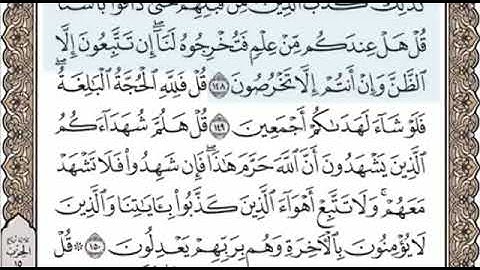 كَذَٰلِكَ كَذَّبَ الَّذِينَ مِن قَبْلِهِمْ حَتَّىٰ ذَاقُوا بَأْسَنَا
قُلْ هَلْ عِندَكُم مِّنْ عِلْمٍ فَتُخْرِجُوهُ لَنَا ۖ إِن تَتَّبِعُونَ إِلَّا
الظَّنَّ وَإِنْ أَنتُمْ إِلَّا تَخْرُصُونَ ١٤٨ قُلْ فَلِلَّهِ الْحُجَّةُ الْبَالِغَةُ ۖ
فَلَوْ شَاءَ لَهَدَىٰكُمْ أَجْمَعِينَ ١٤٩ قُلْ هَلُمَّ شُهَدَاءَكُمُ
الَّذِينَ يَشْهَدُونَ أَنَّ اللَّهَ حَرَّمَ هَٰذَا ۖ فَإِن شَهِدُوا فَلَا تَشْهَدْ
مَعَهُمْ ۚ وَلَا تَتَّبِعْ أَهْوَاءَ الَّذِينَ كَذَّبُوا بِـَٔايَٰتِنَا وَالَّذِينَ
لَا يُؤْمِنُونَ بِالْـَٔاخِرَةِ وَهُم بِرَبِّهِمْ يَعْدِلُونَ ١٥٠ ۞ قُلْ
الحزب
١٥